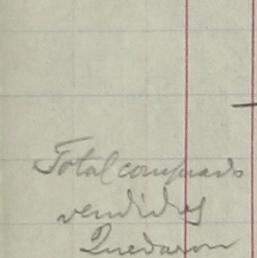 Total comprads
vendidos
Quedaron